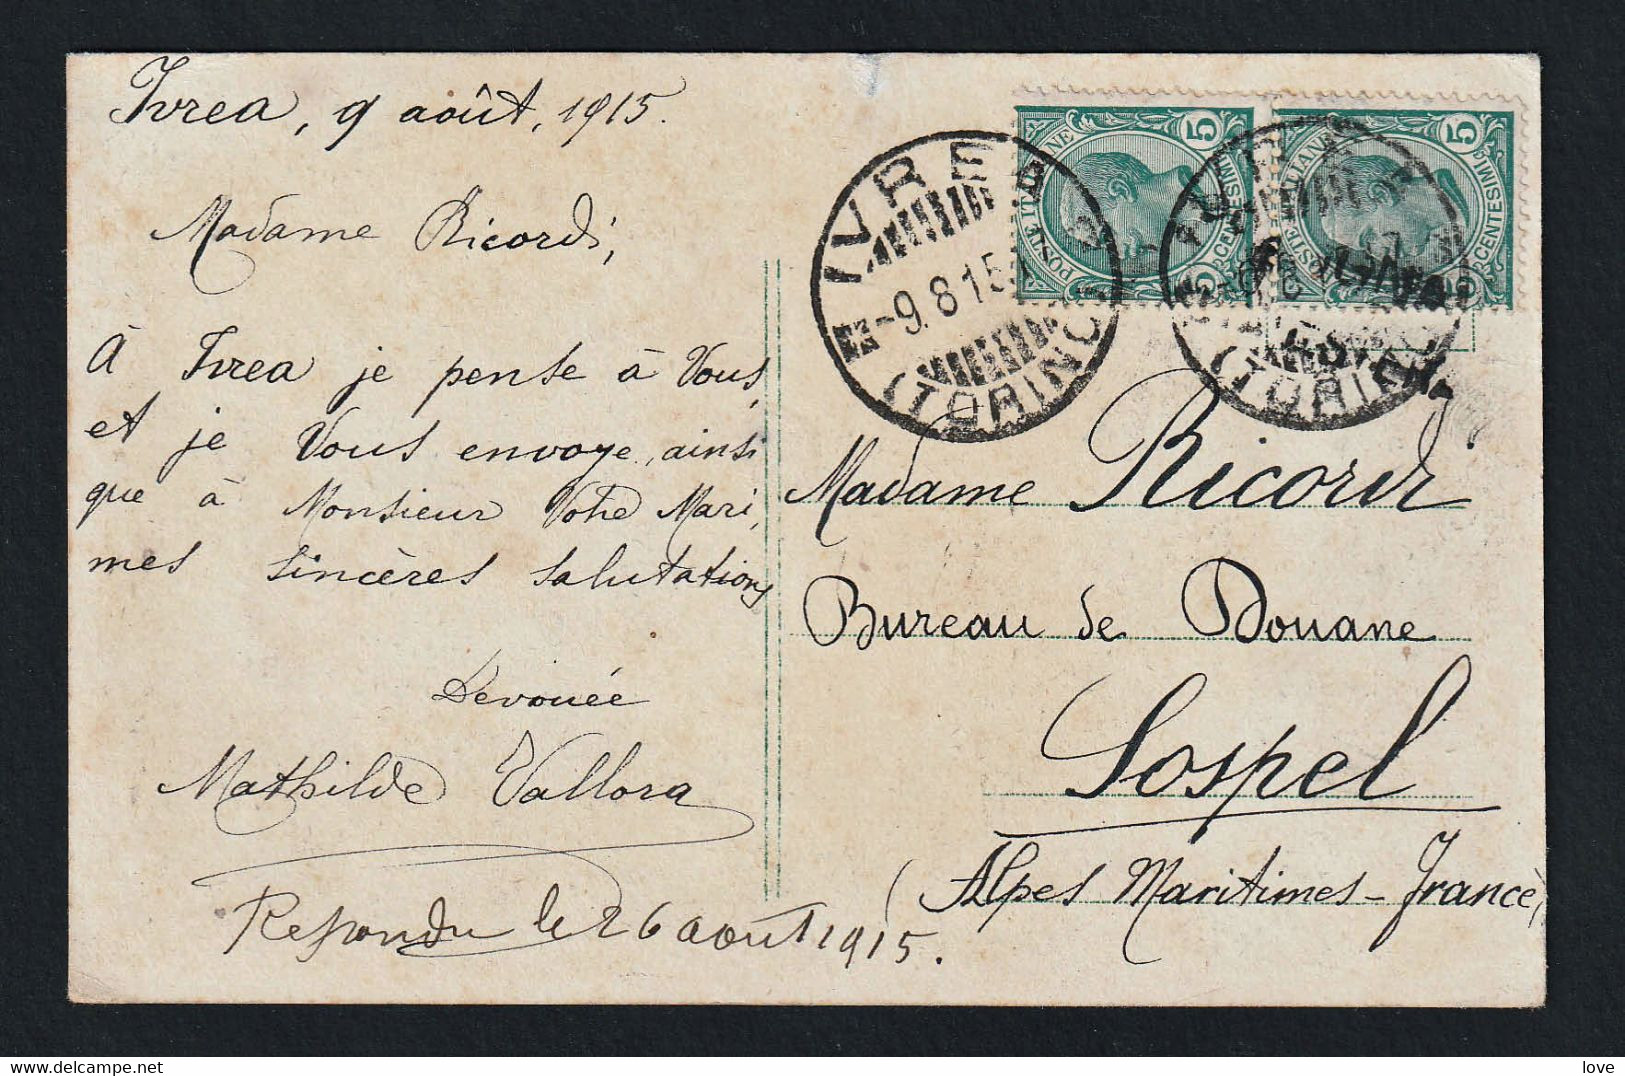 Ivrea, 9 août, 1915.
Madame Ricordi,
À Ivrea je pense à Vous,
et je Vous envoye, ainsi
que à Monsieur Votre Mari,
mes sincères salutations
Dévouée
Mathilde Vallora
Repondu le 26 août 1915.
IVREA
-9.8.15
(TORINO)
POSTE ITALIANE
CENTESIMI 5
5
POSTE ITALIANE
CENTESIMI 5
5
(TORINO)
Madame Ricordi
Bureau de Douane
Sospel
(Alpes Maritimes - France)
love